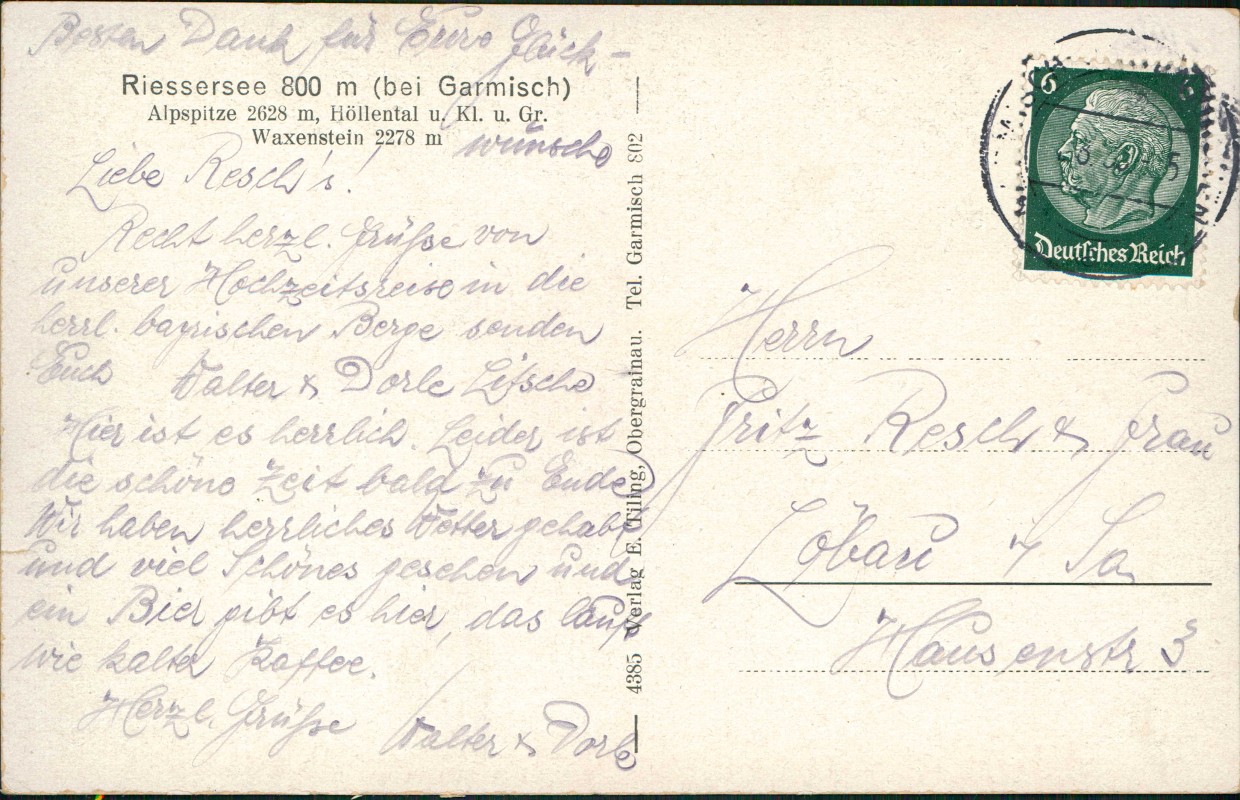 Besten Dank für Eure Glück-
Riessersee 800 m (bei Garmisch)
Alpspitze 2628 m, Höllental u. Kl. u. Gr.
Waxenstein 2278 m
wünsche
Liebe Resch's!
Recht herzl. Grüße von
unserer Hochzeitsreise in die
herrl. bayrischen Berge senden
Euch Walter & Dorle
Hier ist es herrlich. Leider ist
die schöne Zeit bald zu Ende
Wir haben herrliches Wetter gehabt
und viel Schönes gesehen und
ein Bier gibt es hier, das läuft
wie kalter Kaffee.
Herzl. Grüße Walter & Dorle
4385 Verlag E. Tiling, Obergrainau. Tel. Garmisch 802
6
Deutsches Reich
Herrn
Fritz Resch & Frau
Löbau i/ Sa
Hausenstr 3